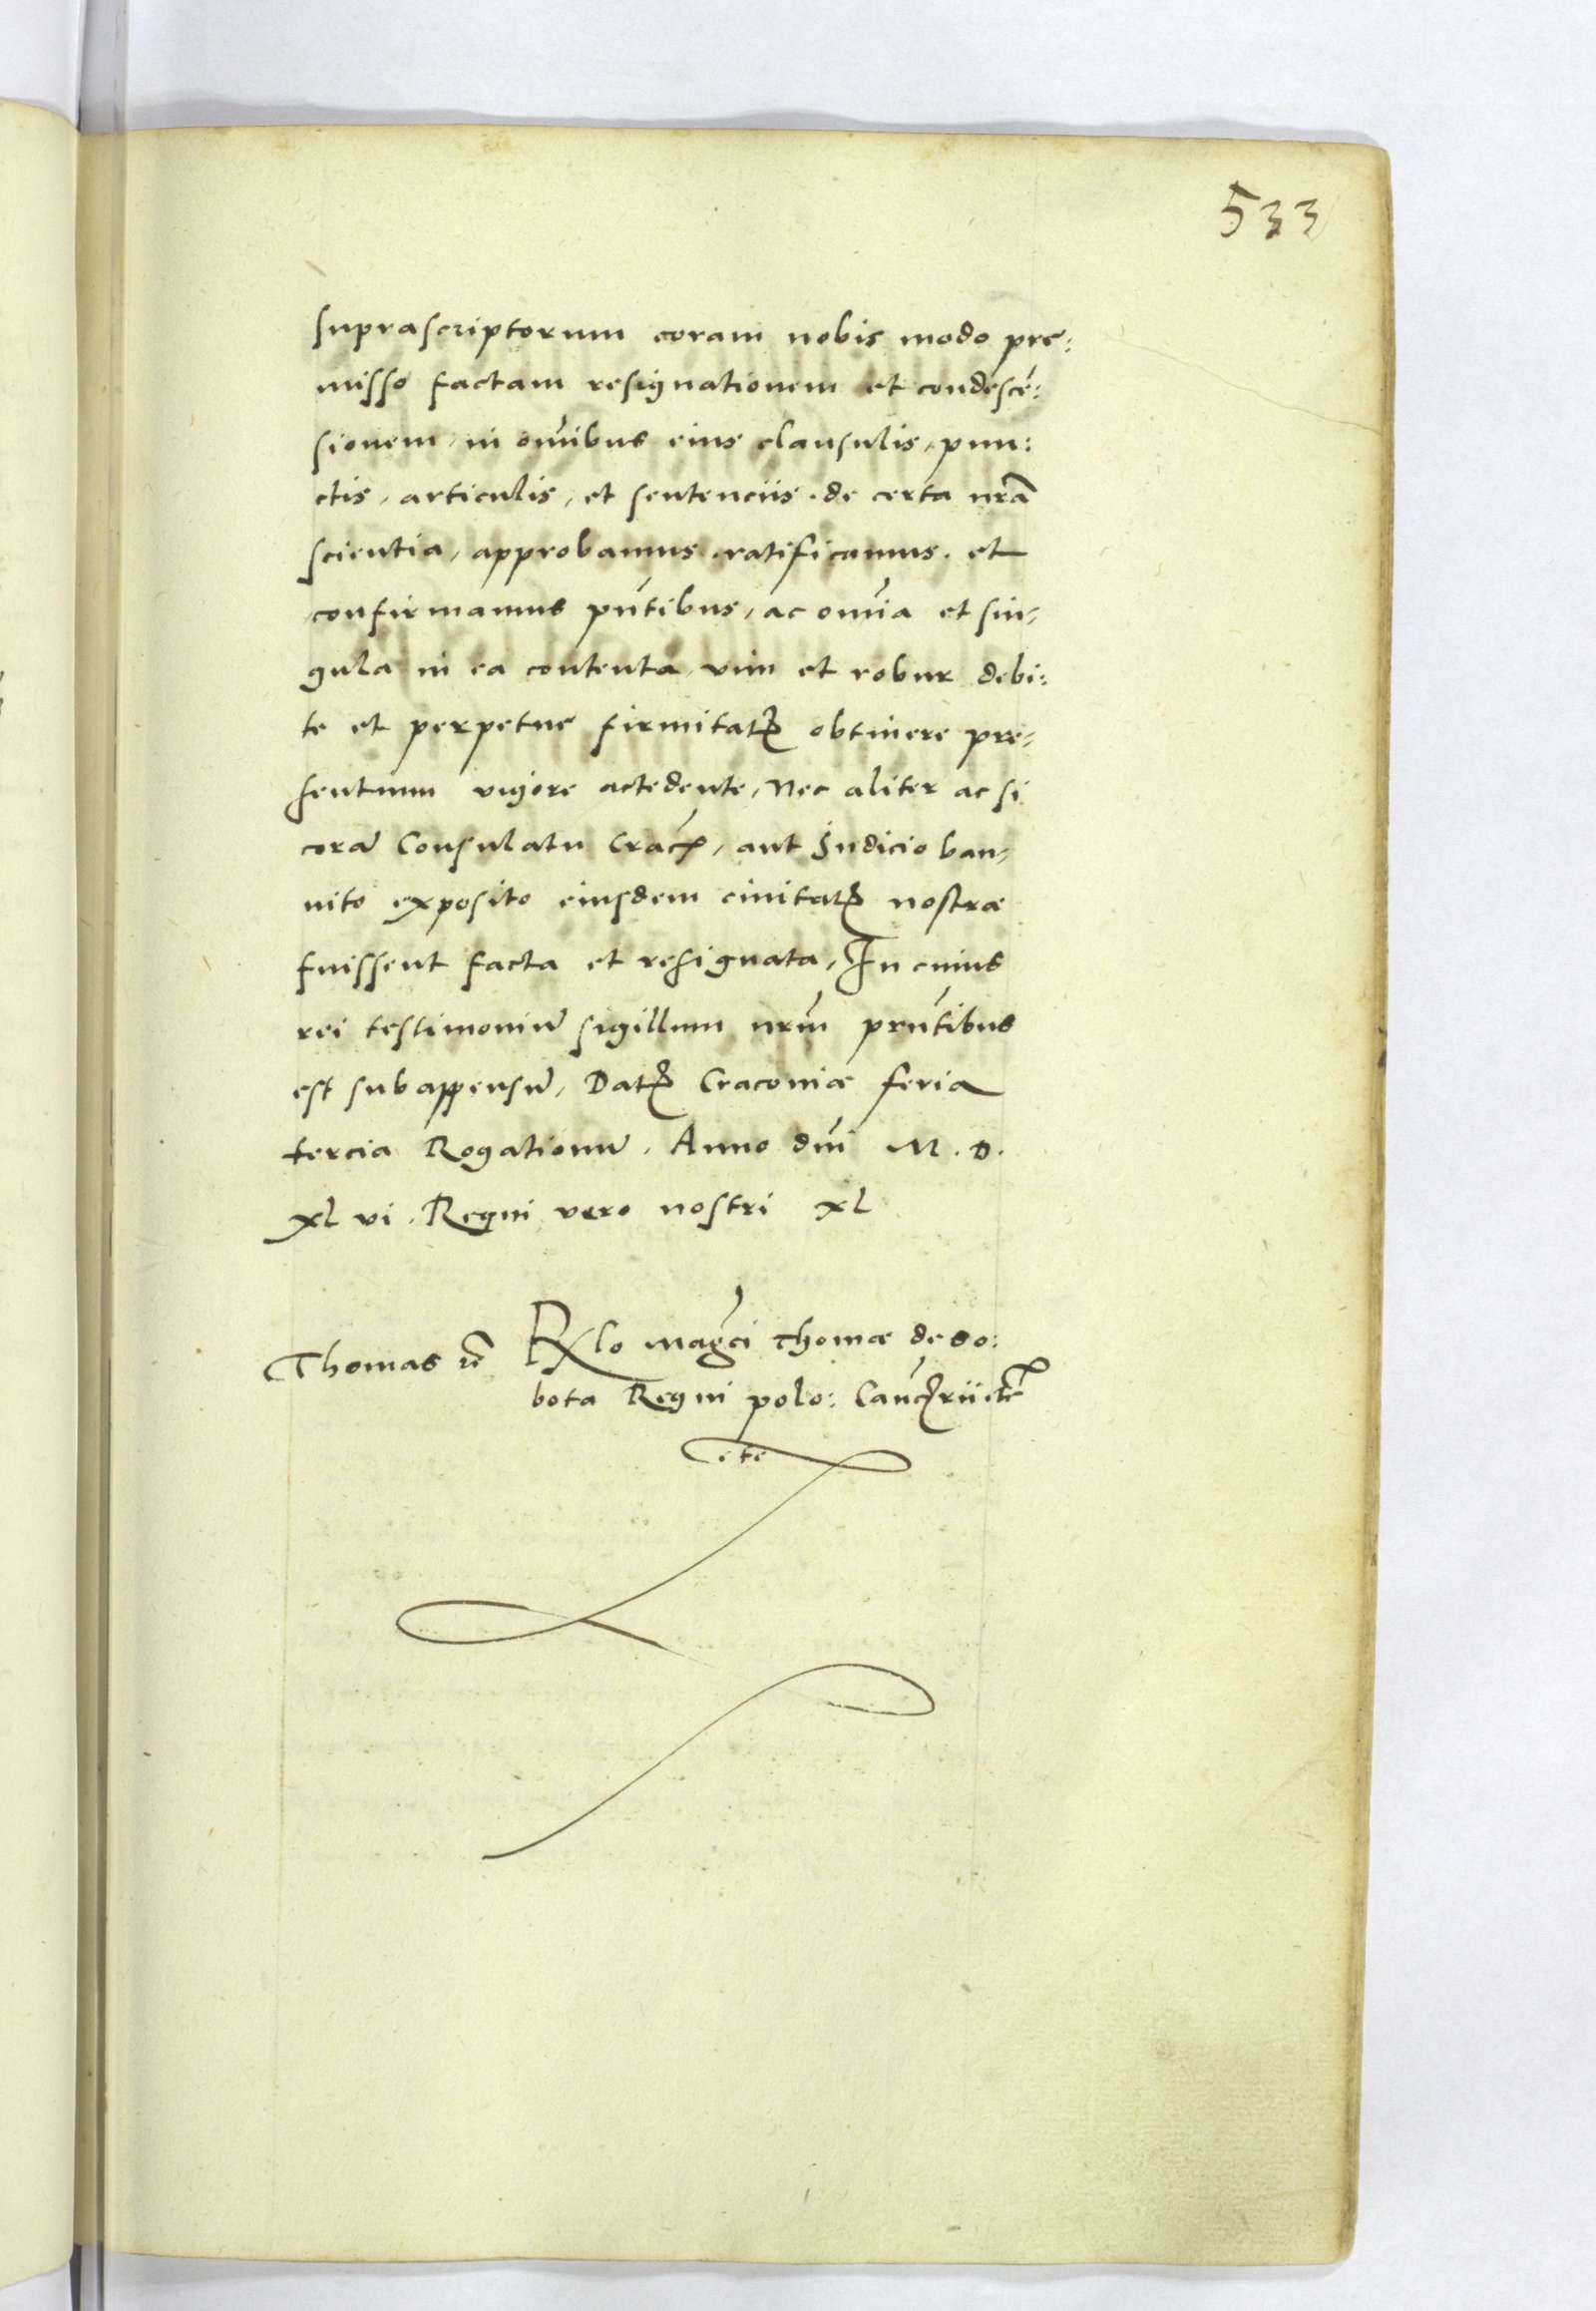 533
suprascriptorum coram nobis modo pre:
misso factam resignationem et condescē:
sionem, in oīnibus eius clausulis, pun:
ctis, articulis, et sentenciis. de certa nrā
scientia, approbamus. ratificamus. et
confirmamus pn̄tibus, ac omīa et sin,
gula in ea contenta, vim et robur debi:
te et perpetue firmitatꝭ obtinere pre,
sentium vigore actedente, Nec aliter ac si
corā Consulatu Cracꝭ, aut Iudicio ban,
nito exposito eiusdem ciuitatꝭ nostræ
fuissent facta et resignata, In cuius
rei testimoniū sigillum nrm̄ prn̄tibus
est subappensū, Datꝭ Cracouiæ feria
tercia Rogationū. Anno dn̄i M. D.
xl vi. Regni vero nostri xl
Thomas
Rlo maḡci Thomæ de so:
bota Regni polo: Can̄cꝭrii etc̄
etc